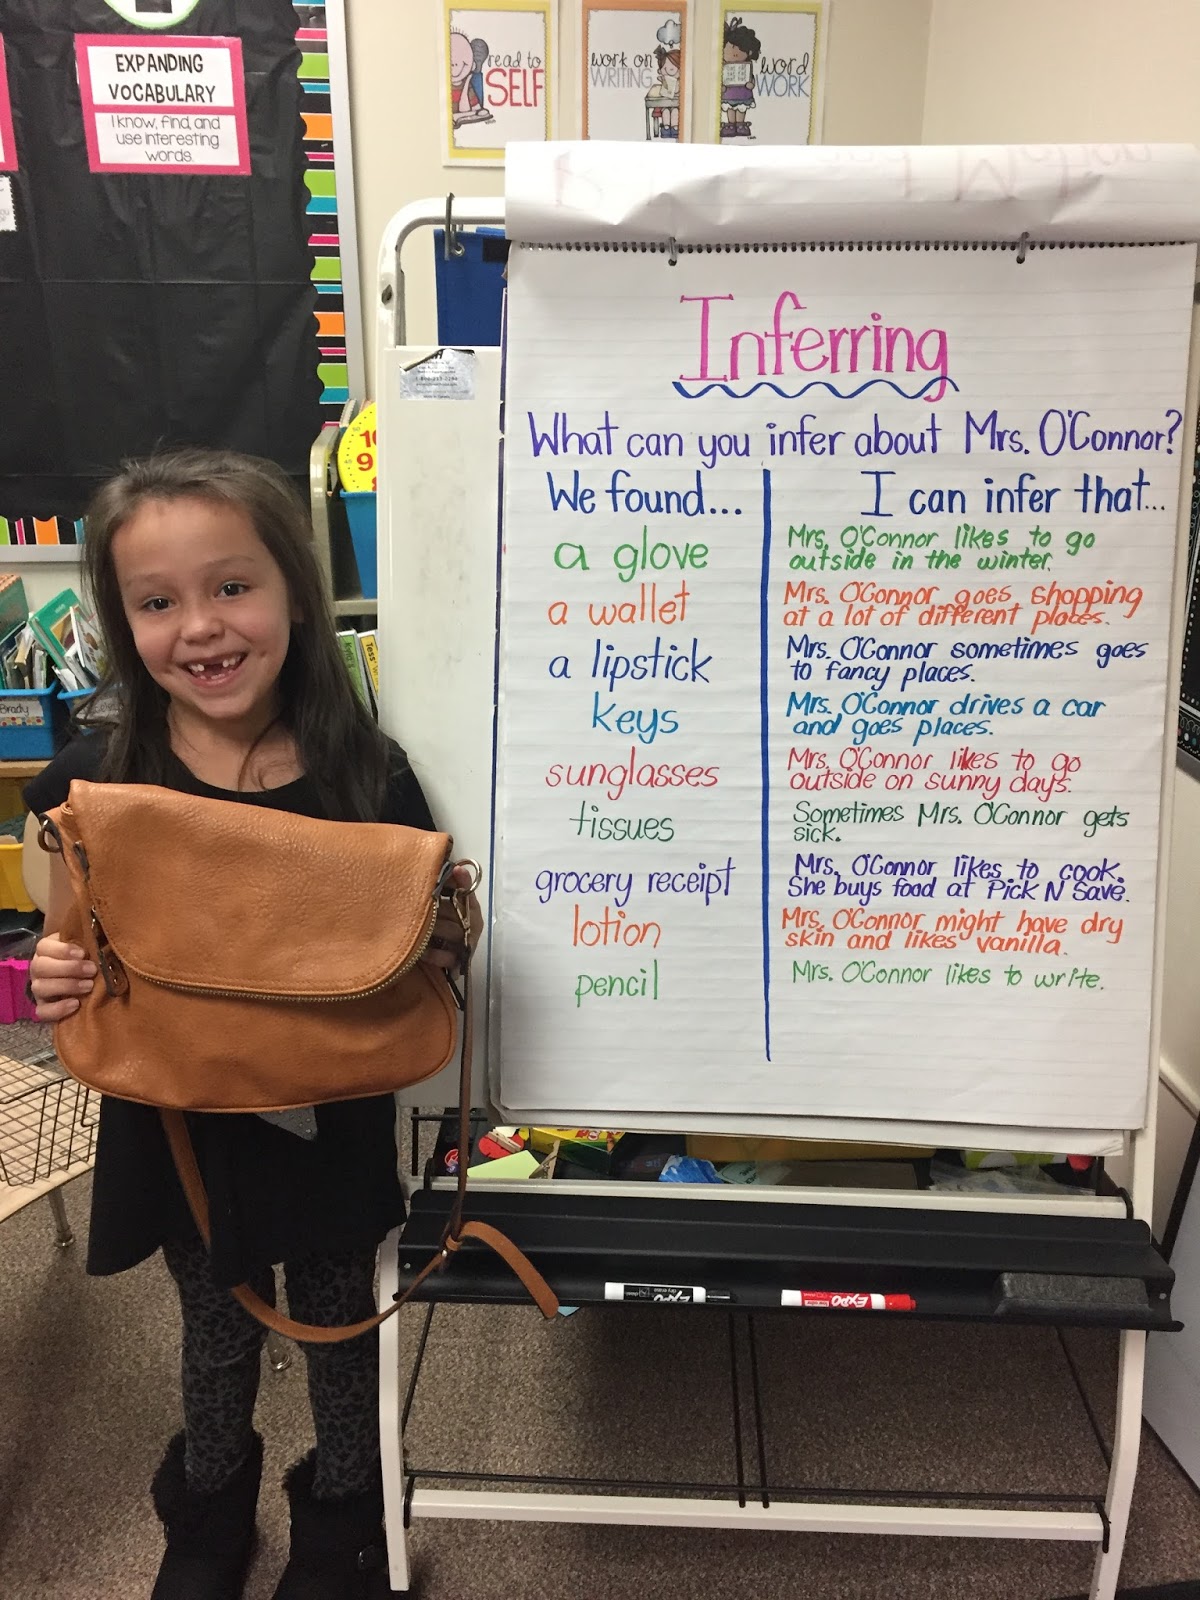 EXPANDING
VOCABULARY
I know, find, and
use interesting
words.
read to
SELF
work on
WRITING
word
WORK
Inferring
What can you infer about Mrs. O'Connor?
We found...
I can infer that...
a glove
Mrs. O'Connor likes to go
outside in the winter.
a wallet
Mrs. O'Connor goes shopping
at a lot of different places.
a lipstick
Mrs. O'Connor sometimes goes
to fancy places.
keys
Mrs. O'Connor drives a car
and goes places.
sunglasses
Mrs. O'Connor likes to go
outside on sunny days.
tissues
Sometimes Mrs. O'Connor gets
sick.
grocery receipt
Mrs. O'Connor likes to cook.
She buys food at Pick N Save.
lotion
Mrs. O'Connor might have dry
skin and likes vanilla.
pencil
Mrs. O'Connor likes to write.
10
9
Brady
EXPO
EXPO